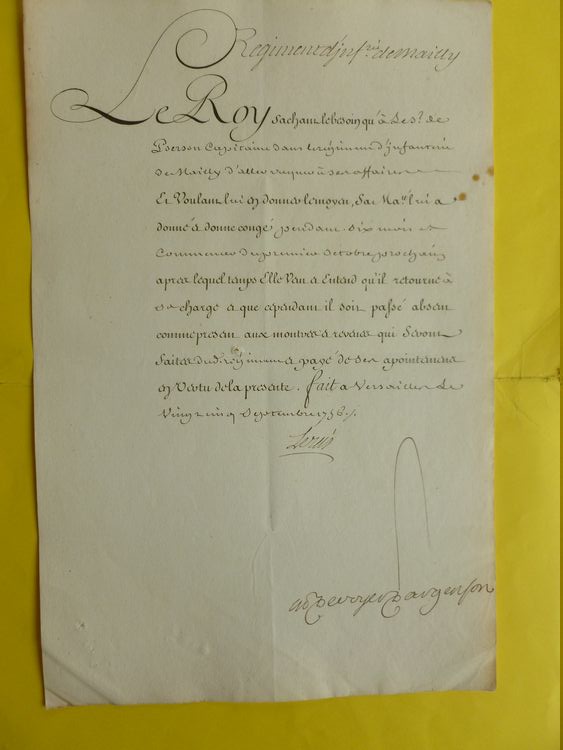 Regiment d'Inf.rie de Mailly
Le Roy sachant le besoin qu'à Le S.r de
Pierson Capitaine dans le regiment d'Infanterie
de Mailly d'aller vaquer à ses affaires
Et Voulant lui en donner le moyen, Sa Ma.té lui a
donné et donne congé pendant six mois et
Commencer du premier Octobre prochain
après lequel temps Elle Veut et Entend qu'il retourne à
sa charge et que cependant il soit passé absent
comme present aux montres et reveues qui seront
faites dud. regiment et payé de ses apointemens
en Vertu de la presente. fait a Versailles Le
Vingt cinq Septembre 1756./.
Louis
M P De voyer D'argenson